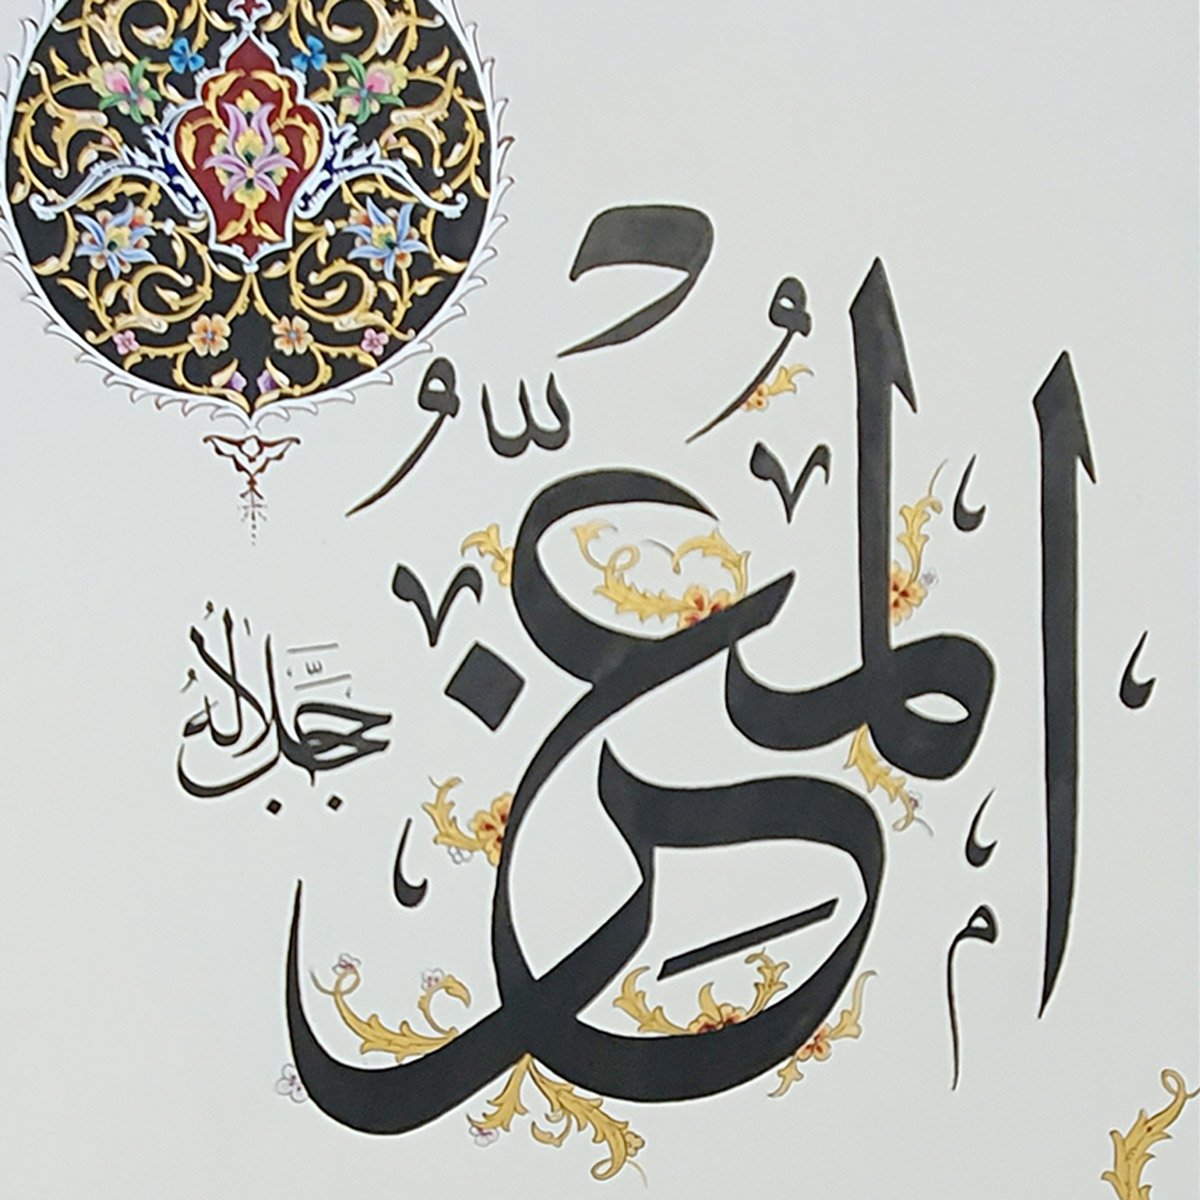 المُعِزُّ
جَلَّ جَلَالُهُ